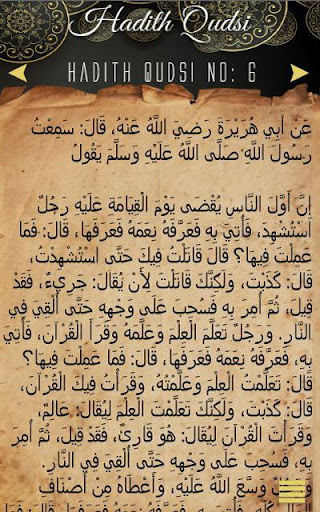 Hadith Qudsi
HADITH QUDSI NO: 6
عَنْ أَبِي هُرَيْرَةَ رَضِيَ اللَّهُ عَنْهُ، قَالَ: سَمِعْتُ
رَسُولَ اللَّهِ صَلَّى اللَّهُ عَلَيْهِ وَسَلَّمَ يَقُولُ
إِنَّ أَوَّلَ النَّاسِ يُقْضَى يَوْمَ الْقِيَامَةِ عَلَيْهِ رَجُلٌ
اسْتُشْهِدَ، فَأُتِيَ بِهِ فَعَرَّفَهُ نِعَمَهُ فَعَرَفَهَا، قَالَ: فَمَا
عَمِلْتَ فِيهَا؟ قَالَ قَاتَلْتُ فِيكَ حَتَّى اسْتُشْهِدْتُ،
قَالَ: كَذَبْتَ، وَلَكِنَّكَ قَاتَلْتَ لِأَنْ يُقَالَ: جَرِيءٌ، فَقَدْ
قِيلَ، ثُمَّ أُمِرَ بِهِ فَسُحِبَ عَلَى وَجْهِهِ حَتَّى أُلْقِيَ فِي
النَّارِ. وَرَجُلٌ تَعَلَّمَ الْعِلْمَ وَعَلَّمَهُ وَقَرَأَ الْقُرْآنَ، فَأُتِيَ
بِهِ، فَعَرَّفَهُ نِعَمَهُ فَعَرَفَهَا، قَالَ: فَمَا عَمِلْتَ فِيهَا؟
قَالَ: تَعَلَّمْتُ الْعِلْمَ وَعَلَّمْتُهُ، وَقَرَأْتُ فِيكَ الْقُرْآنَ،
قَالَ: كَذَبْتَ، وَلَكِنَّكَ تَعَلَّمْتَ الْعِلْمَ لِيُقَالَ: عَالِمٌ،
وَقَرَأْتَ الْقُرْآنَ لِيُقَالَ: هُوَ قَارِئٌ، فَقَدْ قِيلَ، ثُمَّ أُمِرَ
بِهِ، فَسُحِبَ عَلَى وَجْهِهِ حَتَّى أُلْقِيَ فِي النَّارِ.
وَرَجُلٌ وَسَّعَ اللَّهُ عَلَيْهِ، وَأَعْطَاهُ مِنْ أَصْنَافِ